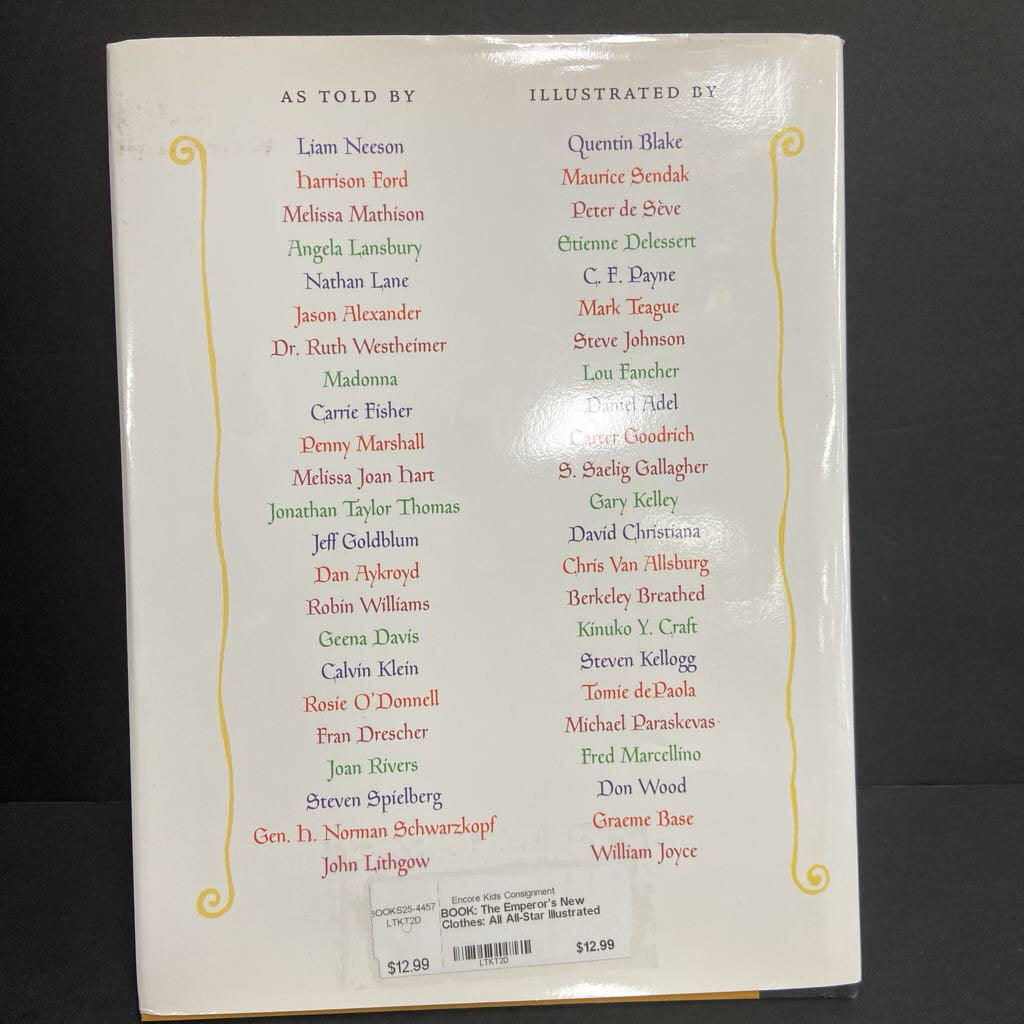 AS TOLD BY
Liam Neeson
Harrison Ford
Melissa Mathison
Angela Lansbury
Nathan Lane
Jason Alexander
Dr. Ruth Westheimer
Madonna
Carrie Fisher
Penny Marshall
Melissa Joan Hart
Jonathan Taylor Thomas
Jeff Goldblum
Dan Aykroyd
Robin Williams
Geena Davis
Calvin Klein
Rosie O'Donnell
Fran Drescher
Joan Rivers
Steven Spielberg
Gen. H. Norman Schwarzkopf
John Lithgow
ILLUSTRATED BY
Quentin Blake
Maurice Sendak
Peter de Sève
Etienne Delessert
C. F. Payne
Mark Teague
Steve Johnson
Lou Fancher
Daniel Adel
Carter Goodrich
S. Saelig Gallagher
Gary Kelley
David Christiana
Chris Van Allsburg
Berkeley Breathed
Kinuko Y. Craft
Steven Kellogg
Tomie dePaola
Michael Paraskevas
Fred Marcellino
Don Wood
Graeme Base
William Joyce
BOOKS25-4457
LTKT2D
$12.99
Encore Kids Consignment
BOOK: The Emperor's New
Clothes: All All-Star Illustrated
LTKT2D
$12.99